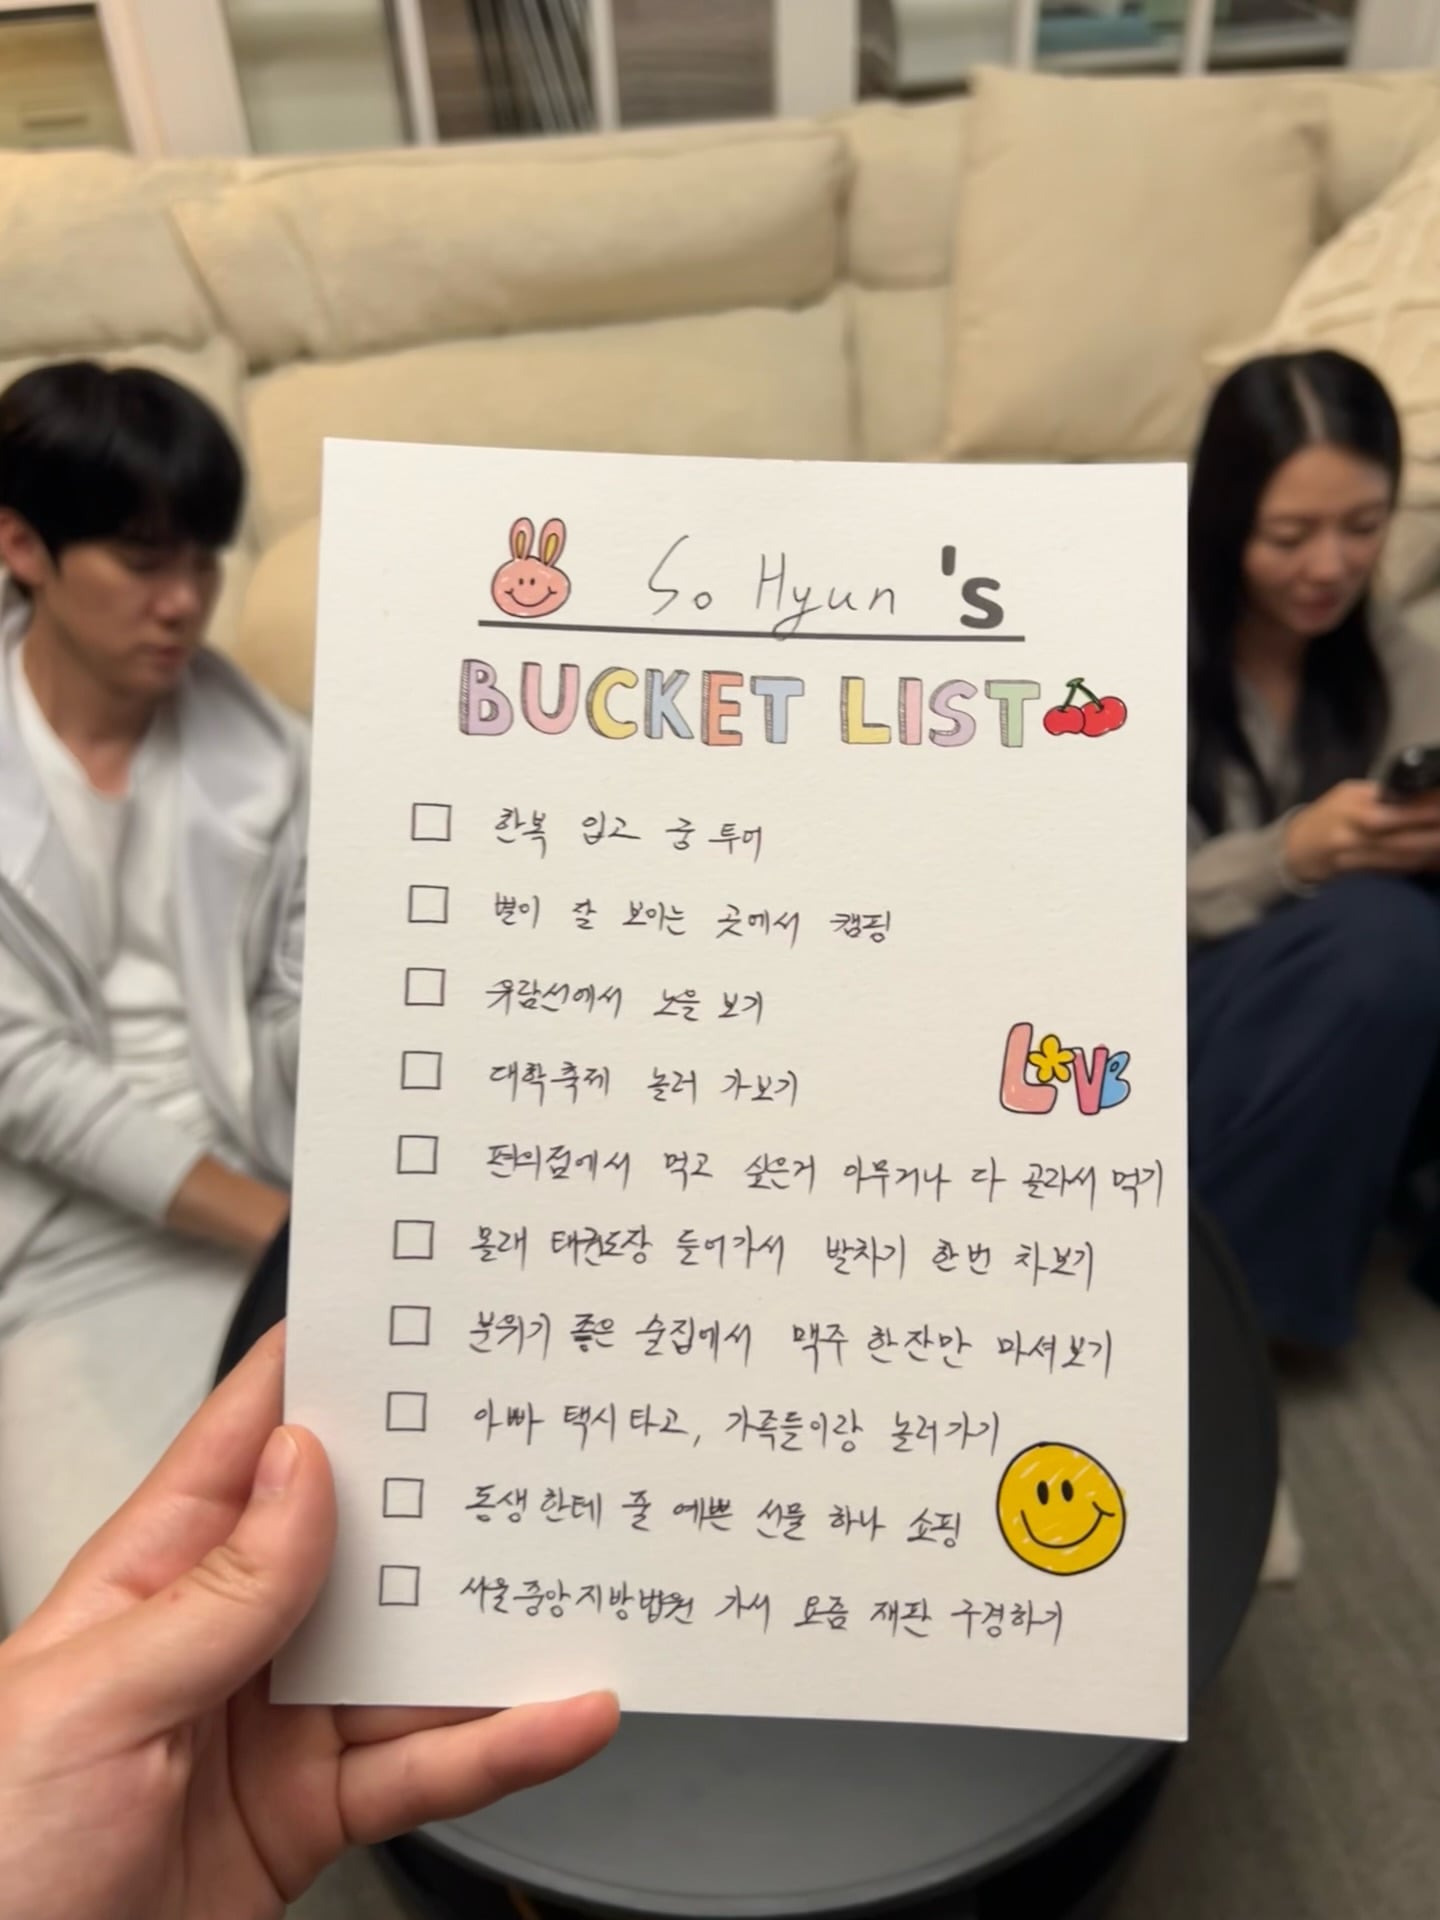 So Hyun's
BUCKET LIST
한복 입고 궁 투어
별이 잘 보이는 곳에서 캠핑
유람선에서 노을 보기
대학축제 놀러 가보기
LOVE
편의점에서 먹고 싶은거 아무거나 다 골라서 먹기
몰래 태권도장 들어가서 발차기 한번 차보기
분위기 좋은 술집에서 맥주 한잔만 마셔보기
아빠 택시타고, 가족들이랑 놀러가기
동생한테 줄 예쁜 선물 하나 쇼핑
서울중앙지방법원 가서 요즘 재판 구경하기